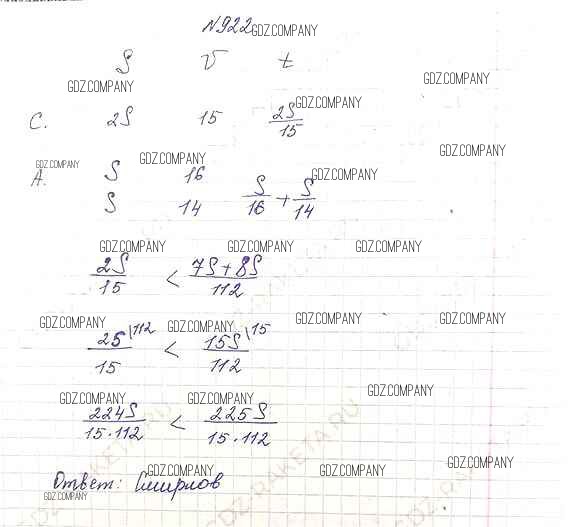 №922 GDZ.COMPANY
S V t
GDZ.COMPANY GDZ.COMPANY
С. 2S 15 2S/15 GDZ.COMPANY
GDZ.COMPANY GDZ.COMPANY GDZ.COMPANY
А. S 16 GDZ.COMPANY
S 14 S/16 + S/14
GDZ.COMPANY GDZ.COMPANY GDZ.COMPANY
2S/15 < 7S+8S/112
GDZ.COMPANY GDZ.COMPANY GDZ.COMPANY GDZ.COMPANY
2S\112/15 < 15S\15/112
GDZ.COMPANY GDZ.COMPANY GDZ.COMPANY
224S/15·112 < 225S/15·112
GDZ.COMPANY GDZ.COMPANY GDZ.COMPANY
Ответ: Смирнов
GDZ.COMPANY